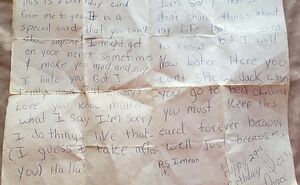 This is a birthday card
from me to you. It is a
special card, that you can't
show anyone. I might get
on your nerves Sometimes
& make you mad and say
I hate you But I
really don't.
Love you no matter
what I say I'm sorry
I do things like that
(I guess I take after
you) Ha Ha
I'm sorry that I
don't share things about
my life
to know but I will
Now Listen Here you
can't show back when
you go to bed
you must Keep this
card forever because
well Just because,
P.S I mean
it.
Happy
Birthday